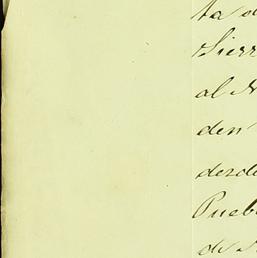 ta d
Sierr
al N
den
desde
Pueb
de